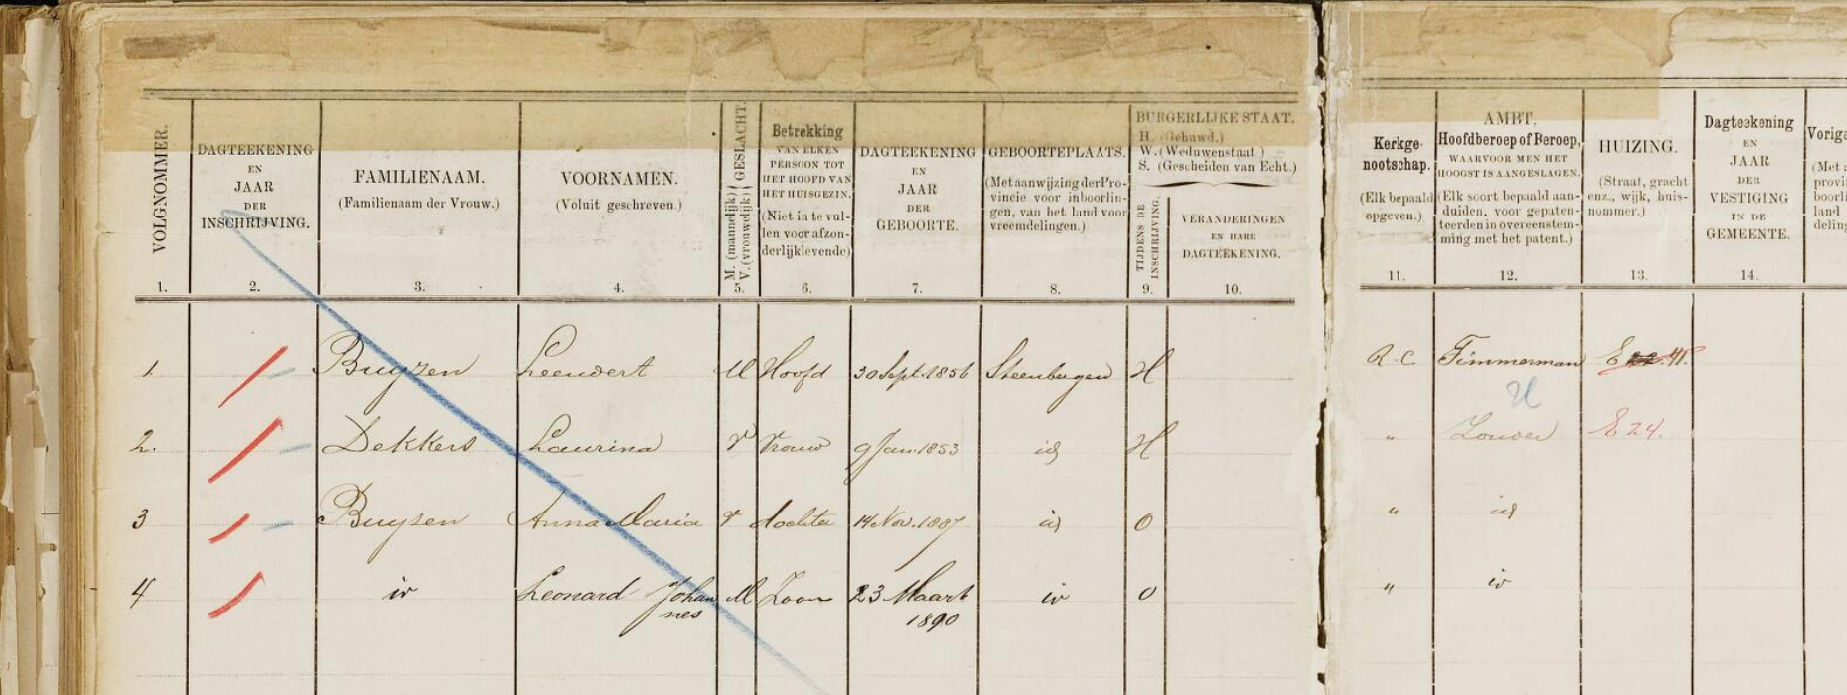 VOLGNOMMER.
1.
DAGTEEKENING
EN
JAAR
DER
INSCHRIJVING.
2.
FAMILIENAAM.
(Familienaam der Vrouw.)
3.
VOORNAMEN.
(Voluit geschreven.)
4.
M. (mannelijk)
V. (vrouwelijk)
GESLACHT.
5.
Betrekking
VAN ELKEN
PERSOON TOT
HET HOOFD VAN
HET HUISGEZIN.
(Niet in te vul-
len voor afzon-
derlijk levende)
6.
DAGTEEKENING
EN
JAAR
DER
GEBOORTE.
7.
GEBOORTEPLAATS.
(Met aanwijzing der Pro-
vincie voor inboorlin-
gen, van het land voor
vreemdelingen.)
8.
BURGERLIJKE STAAT.
H. (Gehuwd.)
W. (Weduwenstaat)
S. (Gescheiden van Echt.)
TIJDENS DE
INSCHRIJVING.
9.
VERANDERINGEN
EN HARE
DAGTEEKENING.
10.
Kerkge-
nootschap.
(Elk bepaald
opgeven.)
11.
AMBT,
Hoofdberoep of Beroep,
WAARVOOR MEN HET
HOOGST IS AANGESLAGEN.
(Elk soort bepaald aan-
duiden, voor gepaten-
teerden in overeenstem-
ming met het patent.)
12.
HUIZING.
(Straat, gracht
enz., wijk, huis-
nommer.)
13.
Dagteekening
EN
JAAR
DER
VESTIGING
IN DE
GEMEENTE.
14.
Vorig
(Met a
provi
boorli
land
deling
1. Buyzen Leendert M Hoofd 30 Sept. 1856 Steenbergen H R.C. Timmerman E 41.
H
2. Dekkers Laurina V Vrouw 9 Jan. 1853 id H " Zonder E 24.
3 Buyzen Anna Maria V dochter 14 Nov. 1887 id O " id
4 id Leonard Johan M Zoon 23 Maart id O " id
nes 1890